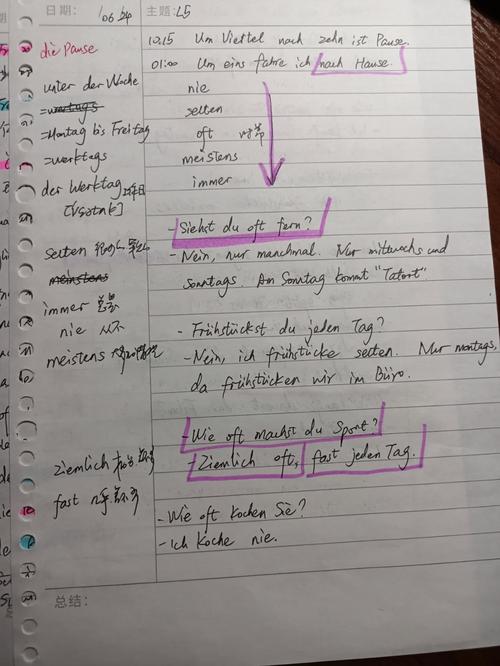 日期: 06 24 主题: L5
die Pause
unter der Woche
=Montag bis Freitag
=werktags
der Werktag 工作日
selten
meinstens
immer 总是
nie 从不
meistens
ziemlich
fast
10.15 Um Viettel nach zehn ist Pause.
01:00 Um eins fahre ich nach Hause.
nie
selten
oft 时常
meistens
immer
- Siehst du oft fern?
- Nein, nur manchmal. Nur mittwochs und
sonntags. Am Sonntag kommt "Tatort"
- Frühstückst du jeden Tag?
- Nein, ich frühstücke selten. Nur montags,
da frühstücken wir im Büro.
- Wie oft machst du Sport?
- Ziemlich oft, fast jeden Tag.
- Wie oft kochen Sie?
- Ich koche nie.
总结: